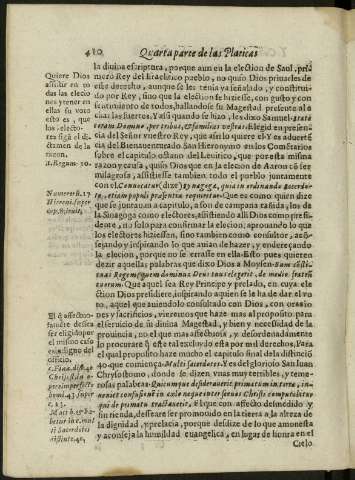 410
Quarta parte de las Platicas
la divina escriptura, porque aun en la election de Saul, pri-
mero Rey del Israelitico pueblo, no quiso Dios privarles de
este derecho, aunque se les tenia ya señalado, y constitui-
do por Rey, sino que la election se hiziesse, con gusto y con
sentimiento de todos, hallandose su Magestad presente al
char las suertes. Y assi quando se hizo, les dixo Samuel: State
coram Domino, per tribus, & familias vestras. Elegid en presen
cia del Señor vuestro Rey, que assi lo quiere el Y es adverten
cia del Bienaventurado San Hieronymo en los Cometarios
sobre el capitulo octavo del Levitico, que por esta misma
razon y causa, quiso Dios que en la election de Aaron cō ser
milagrosa, assistiesse tambien todo el pueblo juntamente
con el. Convocatur, (dize) synagoga, quia in ordinando sacerdo-
te, etiam populi presentia requiritur. Que es como quien dize
que se juntavan a capitulo, a son de campana tañida, los de
la Sinagoga como electores, assistiendo alli Dios como presi-
dente, no solo para confirmar la election; aprovando lo que
los electores hiziessen, sino tambien como consultor, acō-
sejando y inspirando lo que avian de hazer, y endereçando
la election, porque no se errasse en ella. Esto pues quieren
dezir aquellas palabras que dixo Dios a Moysen. Eum consti-
tues Regem, quem dominus Deus tuus elegerit, de medio fratrū
tuorum. Que aquel sea Rey Principe y prelado, en cuya ele
ction Dios presidiere, inspirando a quien se le ha de dar el vo
to, aquel que aviendolo consultado con Dios, con oracio
nes y sacrificios, vieremos que haze mas al proposito para
el servicio de su divina Magestad, y bien y necessidad de la
provincia, no el que mas affectuosa, y desordenadamente
lo procurare q̃ este tal excluydo esta por mil derechos. Para
el qual proposito haze mucho el capitulo final de la distinciō
40 que comiença. Multi sacerdotes. Y es del glorioso San Juan
Chrysostomo, donde se dizen unas muy terribles, y teme-
rosas palabras. Quicumque desideraverit primatum in terra, in-
veniet confusionē in cælo nec que inter servos Christi computabitur
qui de primatu tractaverit. El que con affecto desmedido y
sin rienda, desseare ser promovido en la tierra a la alteza de
la dignidad, y prelacia, porque desdize de lo que amonesta
y aconseja la humildad evangelica, en lugar de honra en el
Cielo
Quiere Dios
assistir en to
das las electio
nes y tener en
ellas su voto
esto es, que
los electo-
res sigā el di-
ctamen de la
razon.
1. Regum. 10.
Numeros 8. 27
Hieroni. super
cap. 8. levit.
El q̃ affectio-
sadamēte dessea
ser eligido por
el mismo caso
es indigno del
officio.